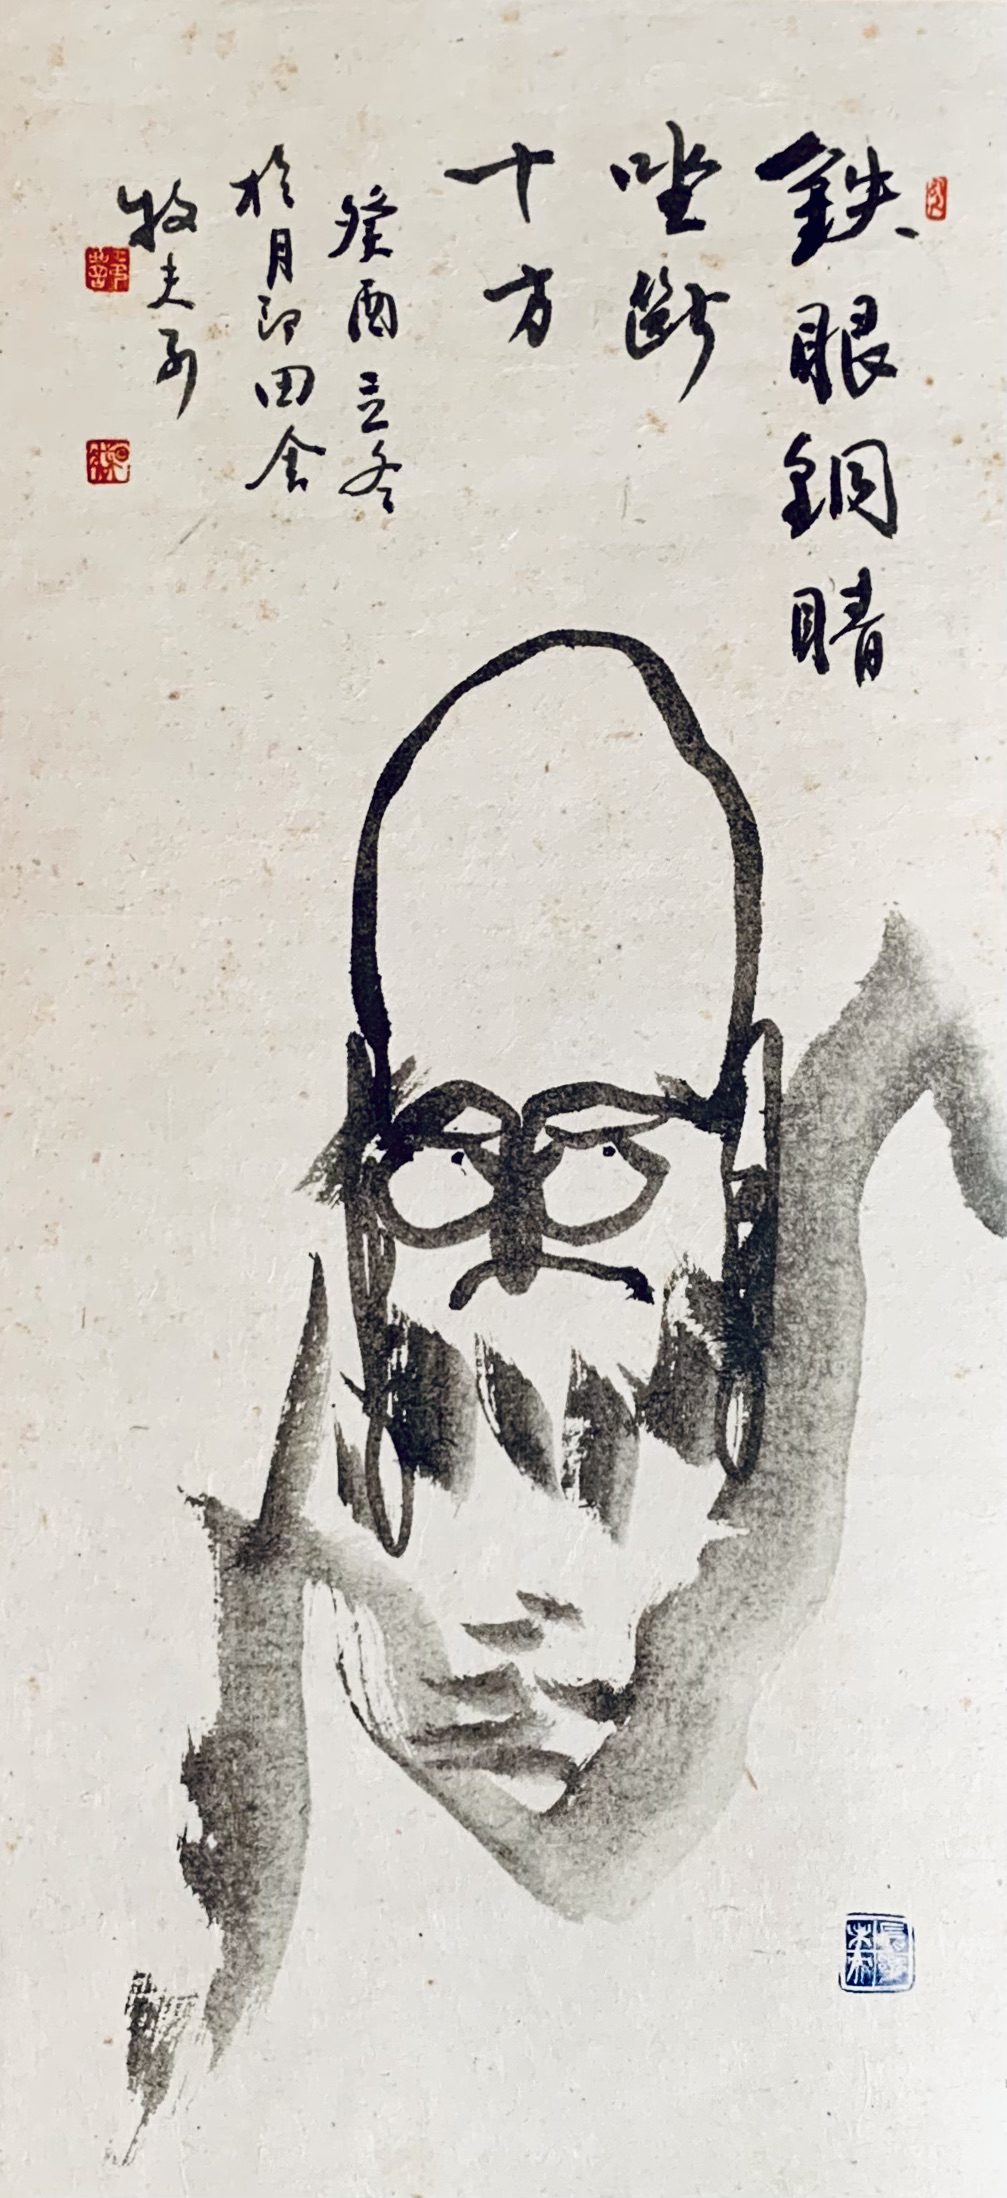 鉄眼銅睛
坐斷
十方
癸酉立冬
於月印田舍
牧夫